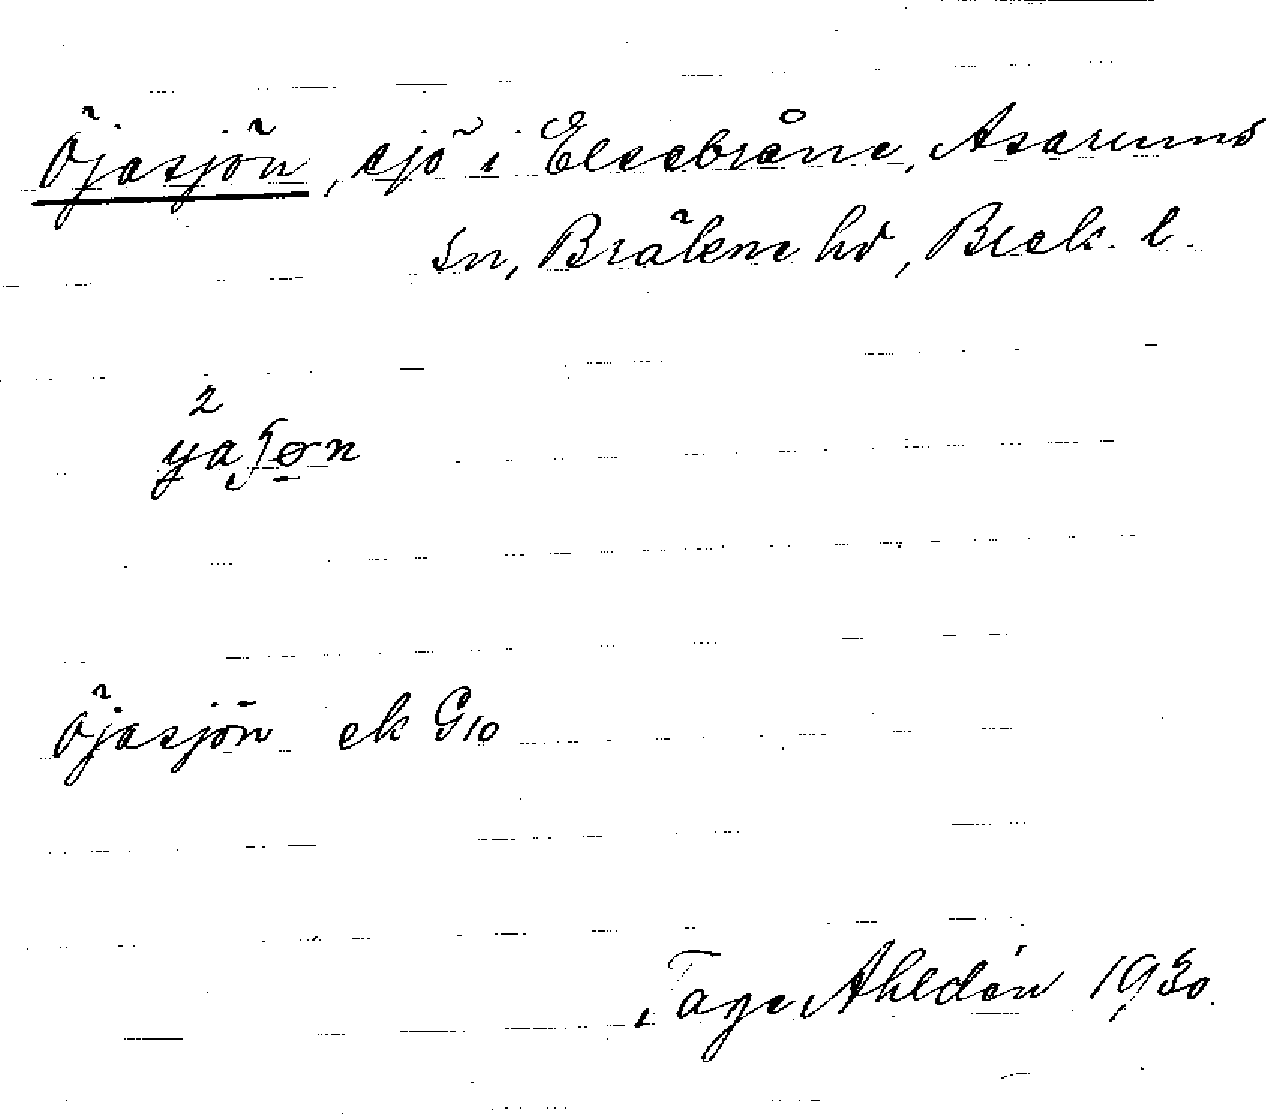 Öjasjön, sjö i Elsebråne, Asarums
sn, Bräkne hd, Blek. l.
2
yaʃøn
Öjasjön ek G10
Tage Ahldén 1930.